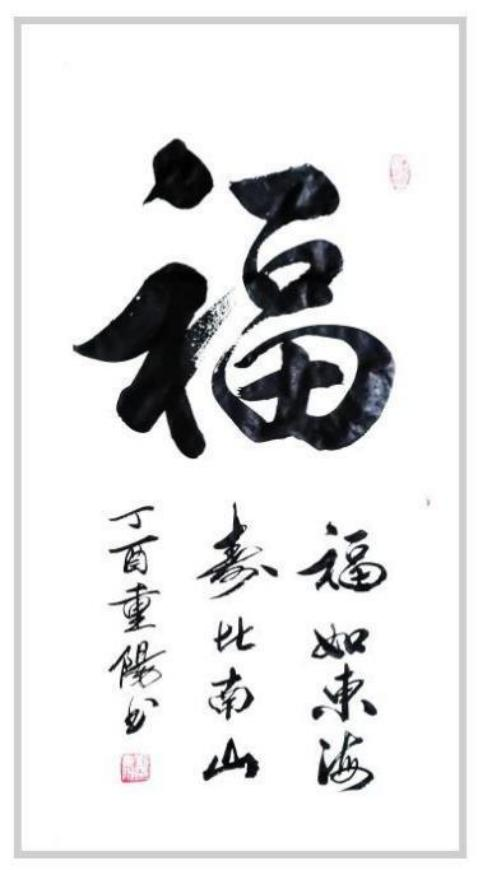 福
福如東海
壽比南山
丁酉重陽书